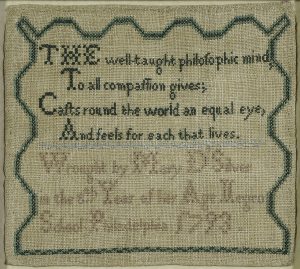 THE well-taught philosophic mind,
To all compassion gives;
Casts round the world an equal eye,
And feels for each that lives.
Wrought by Mary D
in the 8th Year of her Age Negro
School Philadelphia 1793